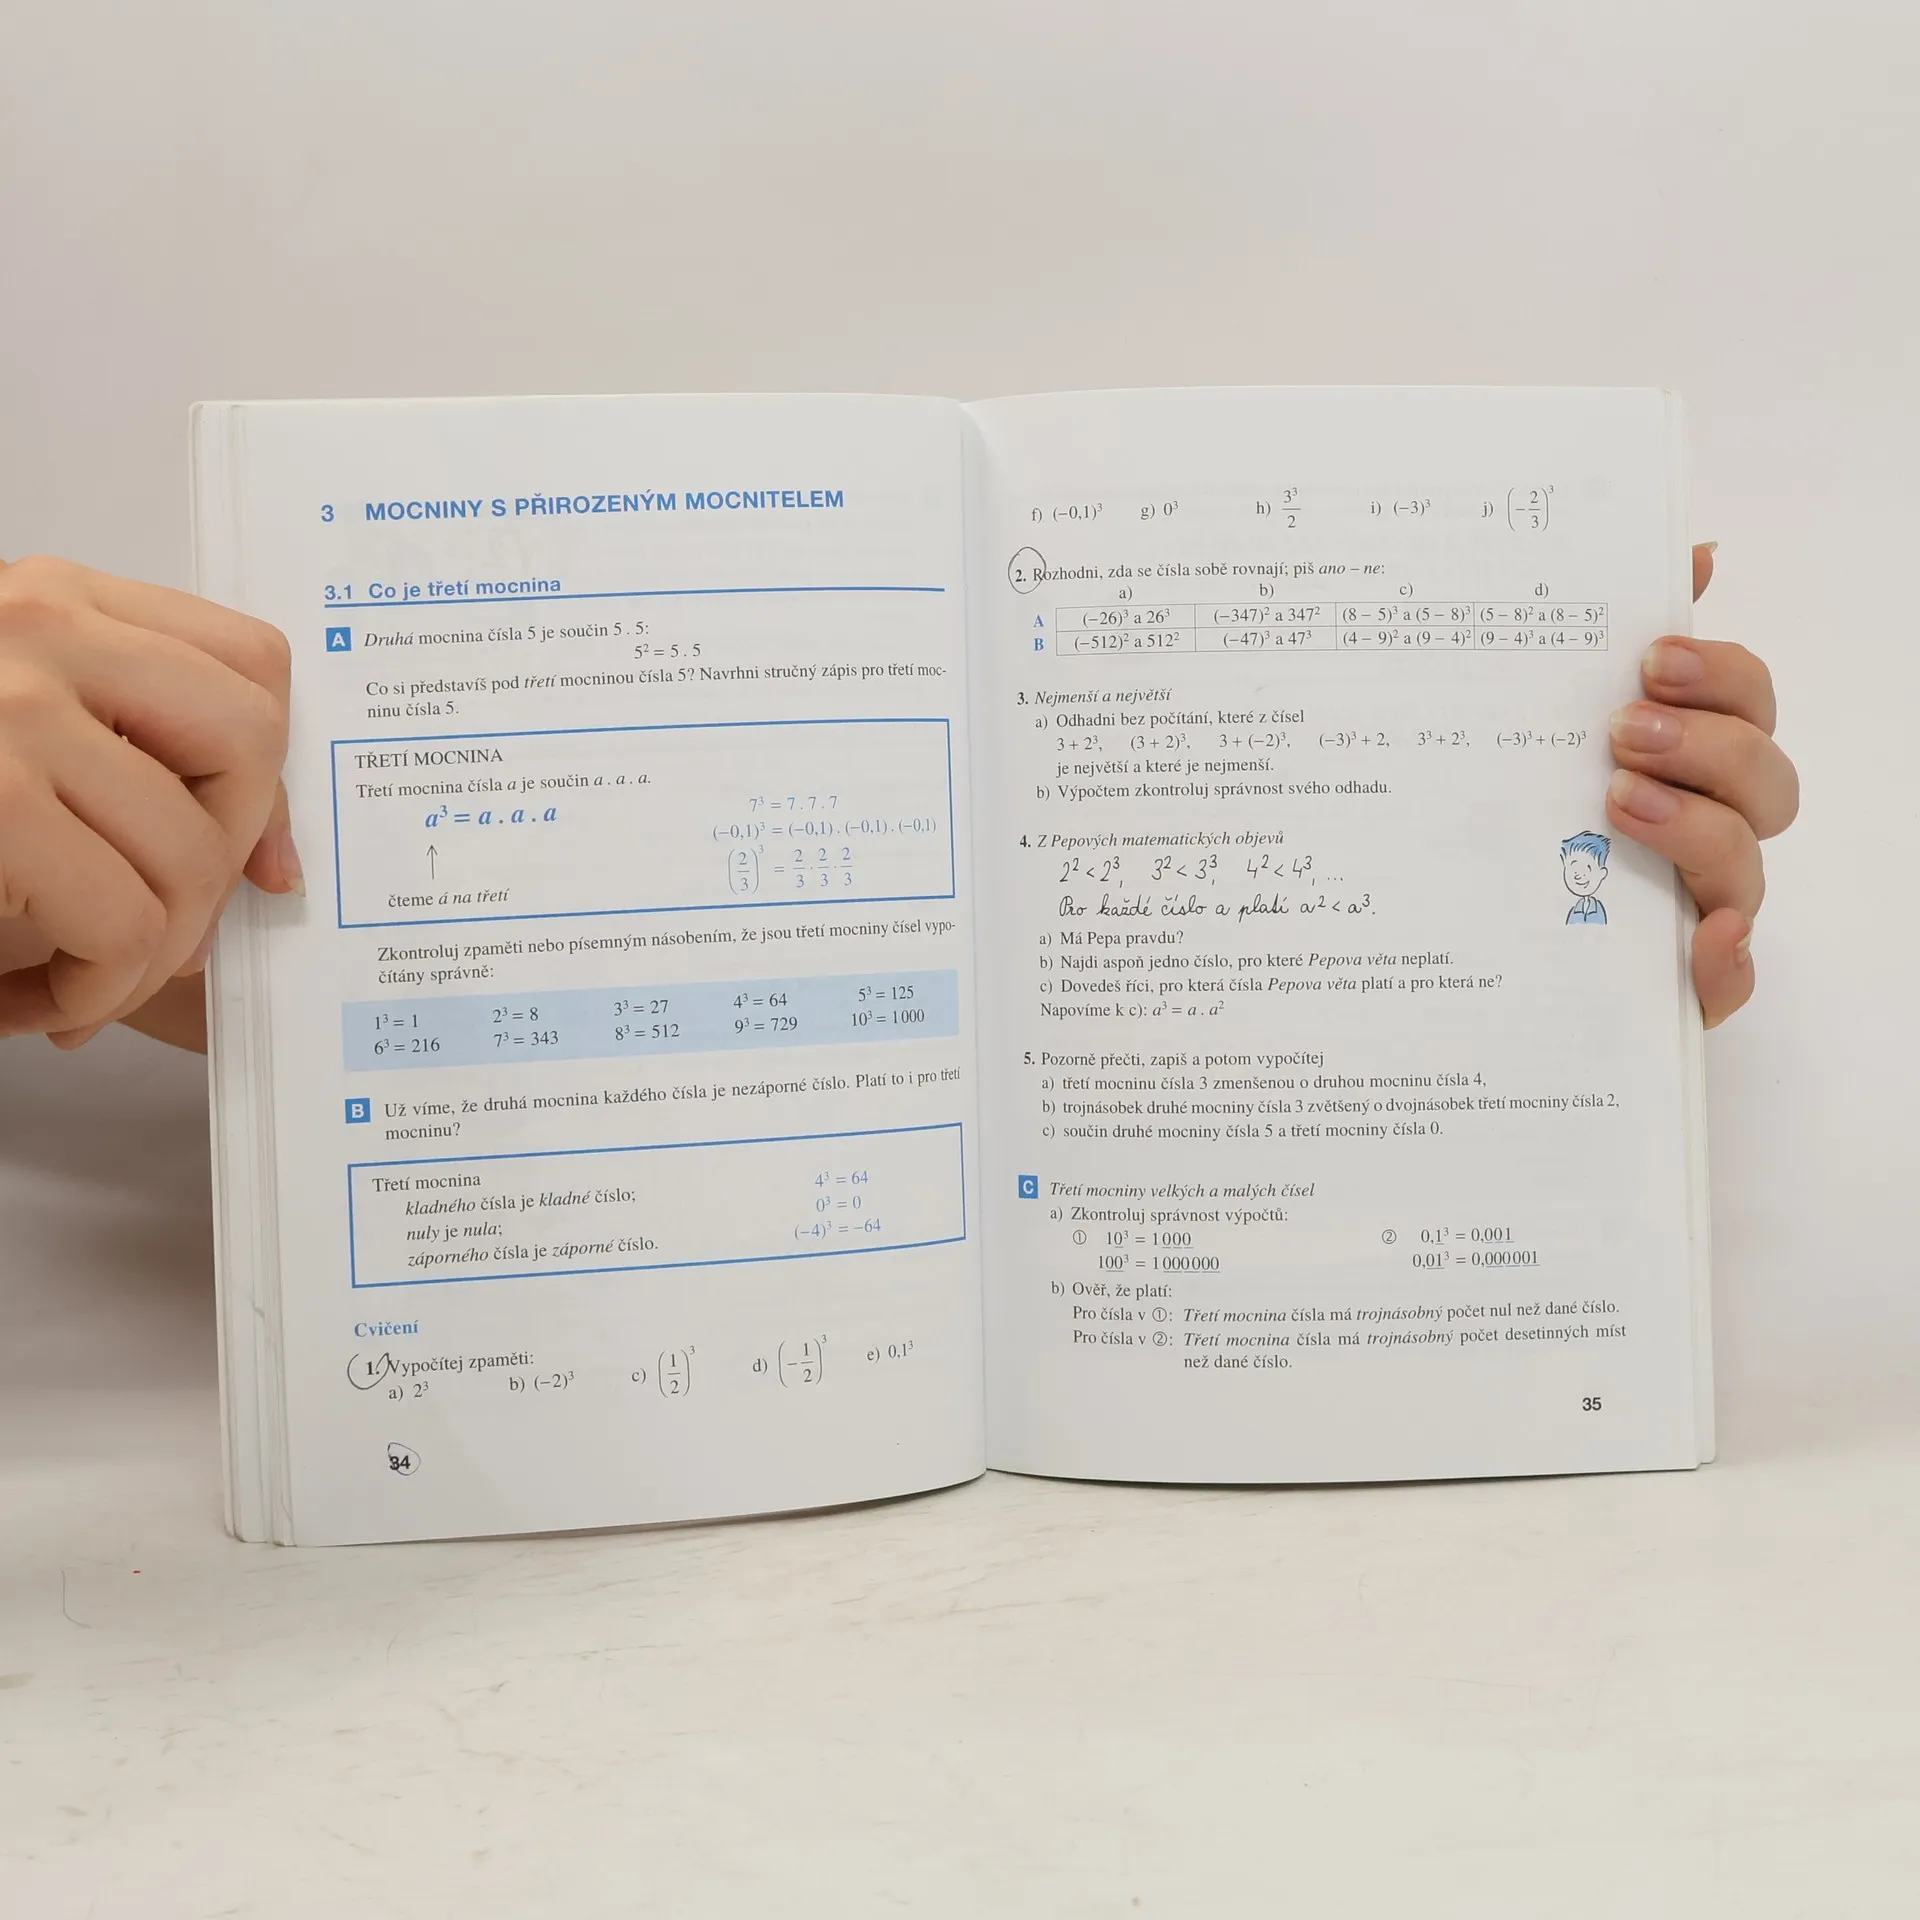 3 MOCNINY S PŘIROZENÝM MOCNITELEM
3.1 Co je třetí mocnina
A Druhá mocnina čísla 5 je součin 5 . 5:
5² = 5 . 5
Co si představíš pod třetí mocninou čísla 5? Navrhni stručný zápis pro třetí moc-
ninu čísla 5.
TŘETÍ MOCNINA
Třetí mocnina čísla a je součin a . a . a.
a³ = a . a . a
7³ = 7 . 7 . 7
(−0,1)³ = (−0,1) . (−0,1) . (−0,1)
(2/3)³ = 2/3 . 2/3 . 2/3
↑
čteme á na třetí
Zkontroluj zpaměti nebo písemným násobením, že jsou třetí mocniny čísel vypo-
čítány správně:
1³ = 1 2³ = 8 3³ = 27 4³ = 64 5³ = 125
6³ = 216 7³ = 343 8³ = 512 9³ = 729 10³ = 1 000
B Už víme, že druhá mocnina každého čísla je nezáporné číslo. Platí to i pro třetí
mocninu?
Třetí mocnina
kladného čísla je kladné číslo; 4³ = 64
nuly je nula; 0³ = 0
záporného čísla je záporné číslo. (−4)³ = −64
Cvičení
1. Vypočítej zpaměti:
a) 2³ b) (−2)³ c) (1/2)³ d) (−1/2)³ e) 0,1³
34
f) (−0,1)³ g) 0³ h) 3³/2 i) (−3)³ j) (−2/3)³
2. Rozhodni, zda se čísla sobě rovnají; piš ano – ne:
a) b) c) d)
A (−26)³ a 26³ (−347)² a 347² (8 − 5)³ a (5 − 8)³ (5 − 8)² a (8 − 5)²
B (−512)² a 512² (−47)³ a 47³ (4 − 9)² a (9 − 4)² (9 − 4)³ a (4 − 9)³
3. Nejmenší a největší
a) Odhadni bez počítání, které z čísel
3 + 2³, (3 + 2)³, 3 + (−2)³, (−3)³ + 2, 3³ + 2³, (−3)³ + (−2)³
je největší a které je nejmenší.
b) Výpočtem zkontroluj správnost svého odhadu.
4. Z Pepových matematických objevů
2² < 2³, 3² < 3³, 4² < 4³, ...
Pro každé číslo a platí a² < a³.
a) Má Pepa pravdu?
b) Najdi aspoň jedno číslo, pro které Pepova věta neplatí.
c) Dovedeš říci, pro která čísla Pepova věta platí a pro která ne?
Napovíme k c): a³ = a . a²
5. Pozorně přečti, zapiš a potom vypočítej
a) třetí mocninu čísla 3 zmenšenou o druhou mocninu čísla 4,
b) trojnásobek druhé mocniny čísla 3 zvětšený o dvojnásobek třetí mocniny čísla 2,
c) součin druhé mocniny čísla 5 a třetí mocniny čísla 0.
C Třetí mocniny velkých a malých čísel
a) Zkontroluj správnost výpočtů:
① 10³ = 1 000 ② 0,1³ = 0,001
100³ = 1 000 000 0,01³ = 0,000 001
b) Ověř, že platí:
Pro čísla v ①: Třetí mocnina čísla má trojnásobný počet nul než dané číslo.
Pro čísla v ②: Třetí mocnina čísla má trojnásobný počet desetinných míst
než dané číslo.
35